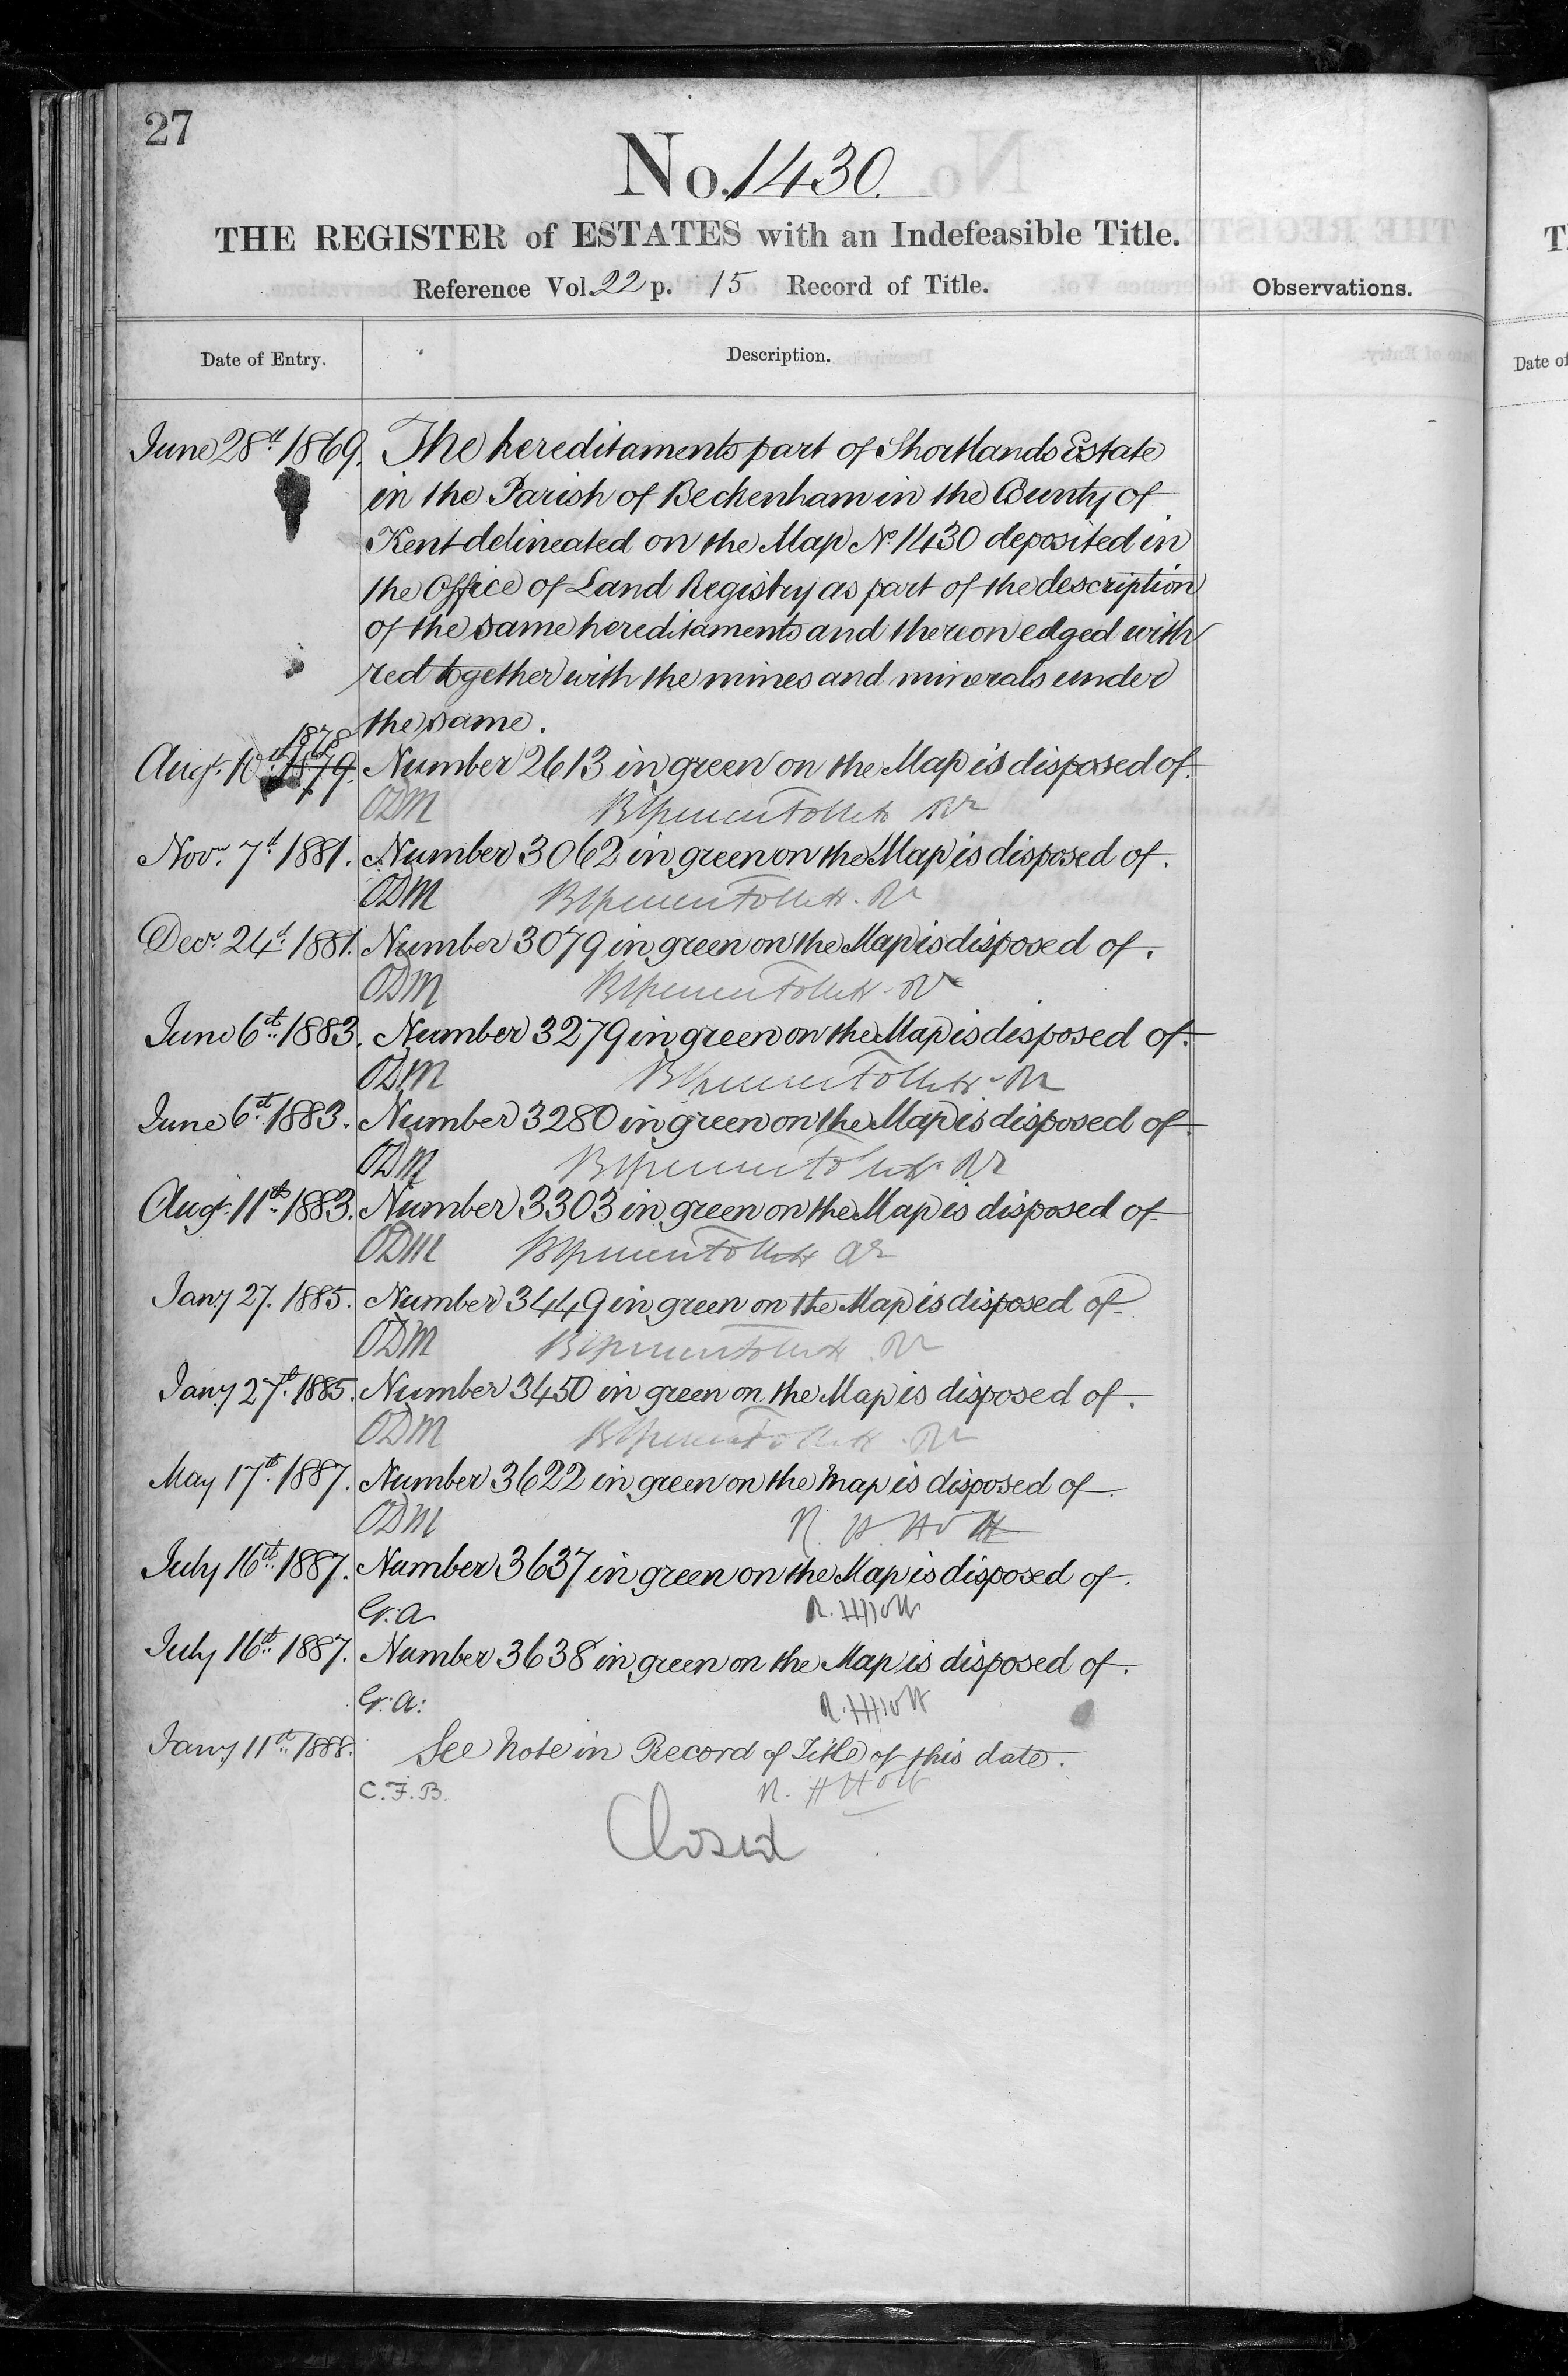 27
No. 1430.
THE REGISTER of ESTATES with an Indefeasible Title.
Reference Vol. 22 p. 15 Record of Title.
Observations.
Date of Entry.
Description.
June 28th 1869. The hereditaments part of Shortlands Estate
in the Parish of Beckenham in the County of
Kent delineated on the Map No. 1430 deposited in
the Office of Land Registry as part of the description
of the same hereditaments and thereon edged with
red together with the mines and minerals under
the same.
1878
Augt. 10th 1879. Number 2613 in green on the Map is disposed of.
ODM
Novr. 7th 1881. Number 3062 in green on the Map is disposed of.
ODM
Decr. 24th 1881. Number 3079 in green on the Map is disposed of.
ODM
June 6th 1883. Number 3279 in green on the Map is disposed of.
ODM
June 6th 1883. Number 3280 in green on the Map is disposed of.
ODM
Augt. 11th 1883. Number 3303 in green on the Map is disposed of.
ODM
Jany 27. 1885. Number 3449 in green on the Map is disposed of.
ODM
Jany 27th 1885. Number 3450 in green on the Map is disposed of.
ODM
May 17th 1887. Number 3622 in green on the Map is disposed of.
ODM R. H. Holt
July 16th 1887. Number 3637 in green on the Map is disposed of.
G. A. R. H. Holt
July 16th 1887. Number 3638 in green on the Map is disposed of.
G. A. R. H. Holt
Jany 11th 1888. See Note in Record of Title of this date.
C. F. B. R. H. Holt
Closed
T
Date of